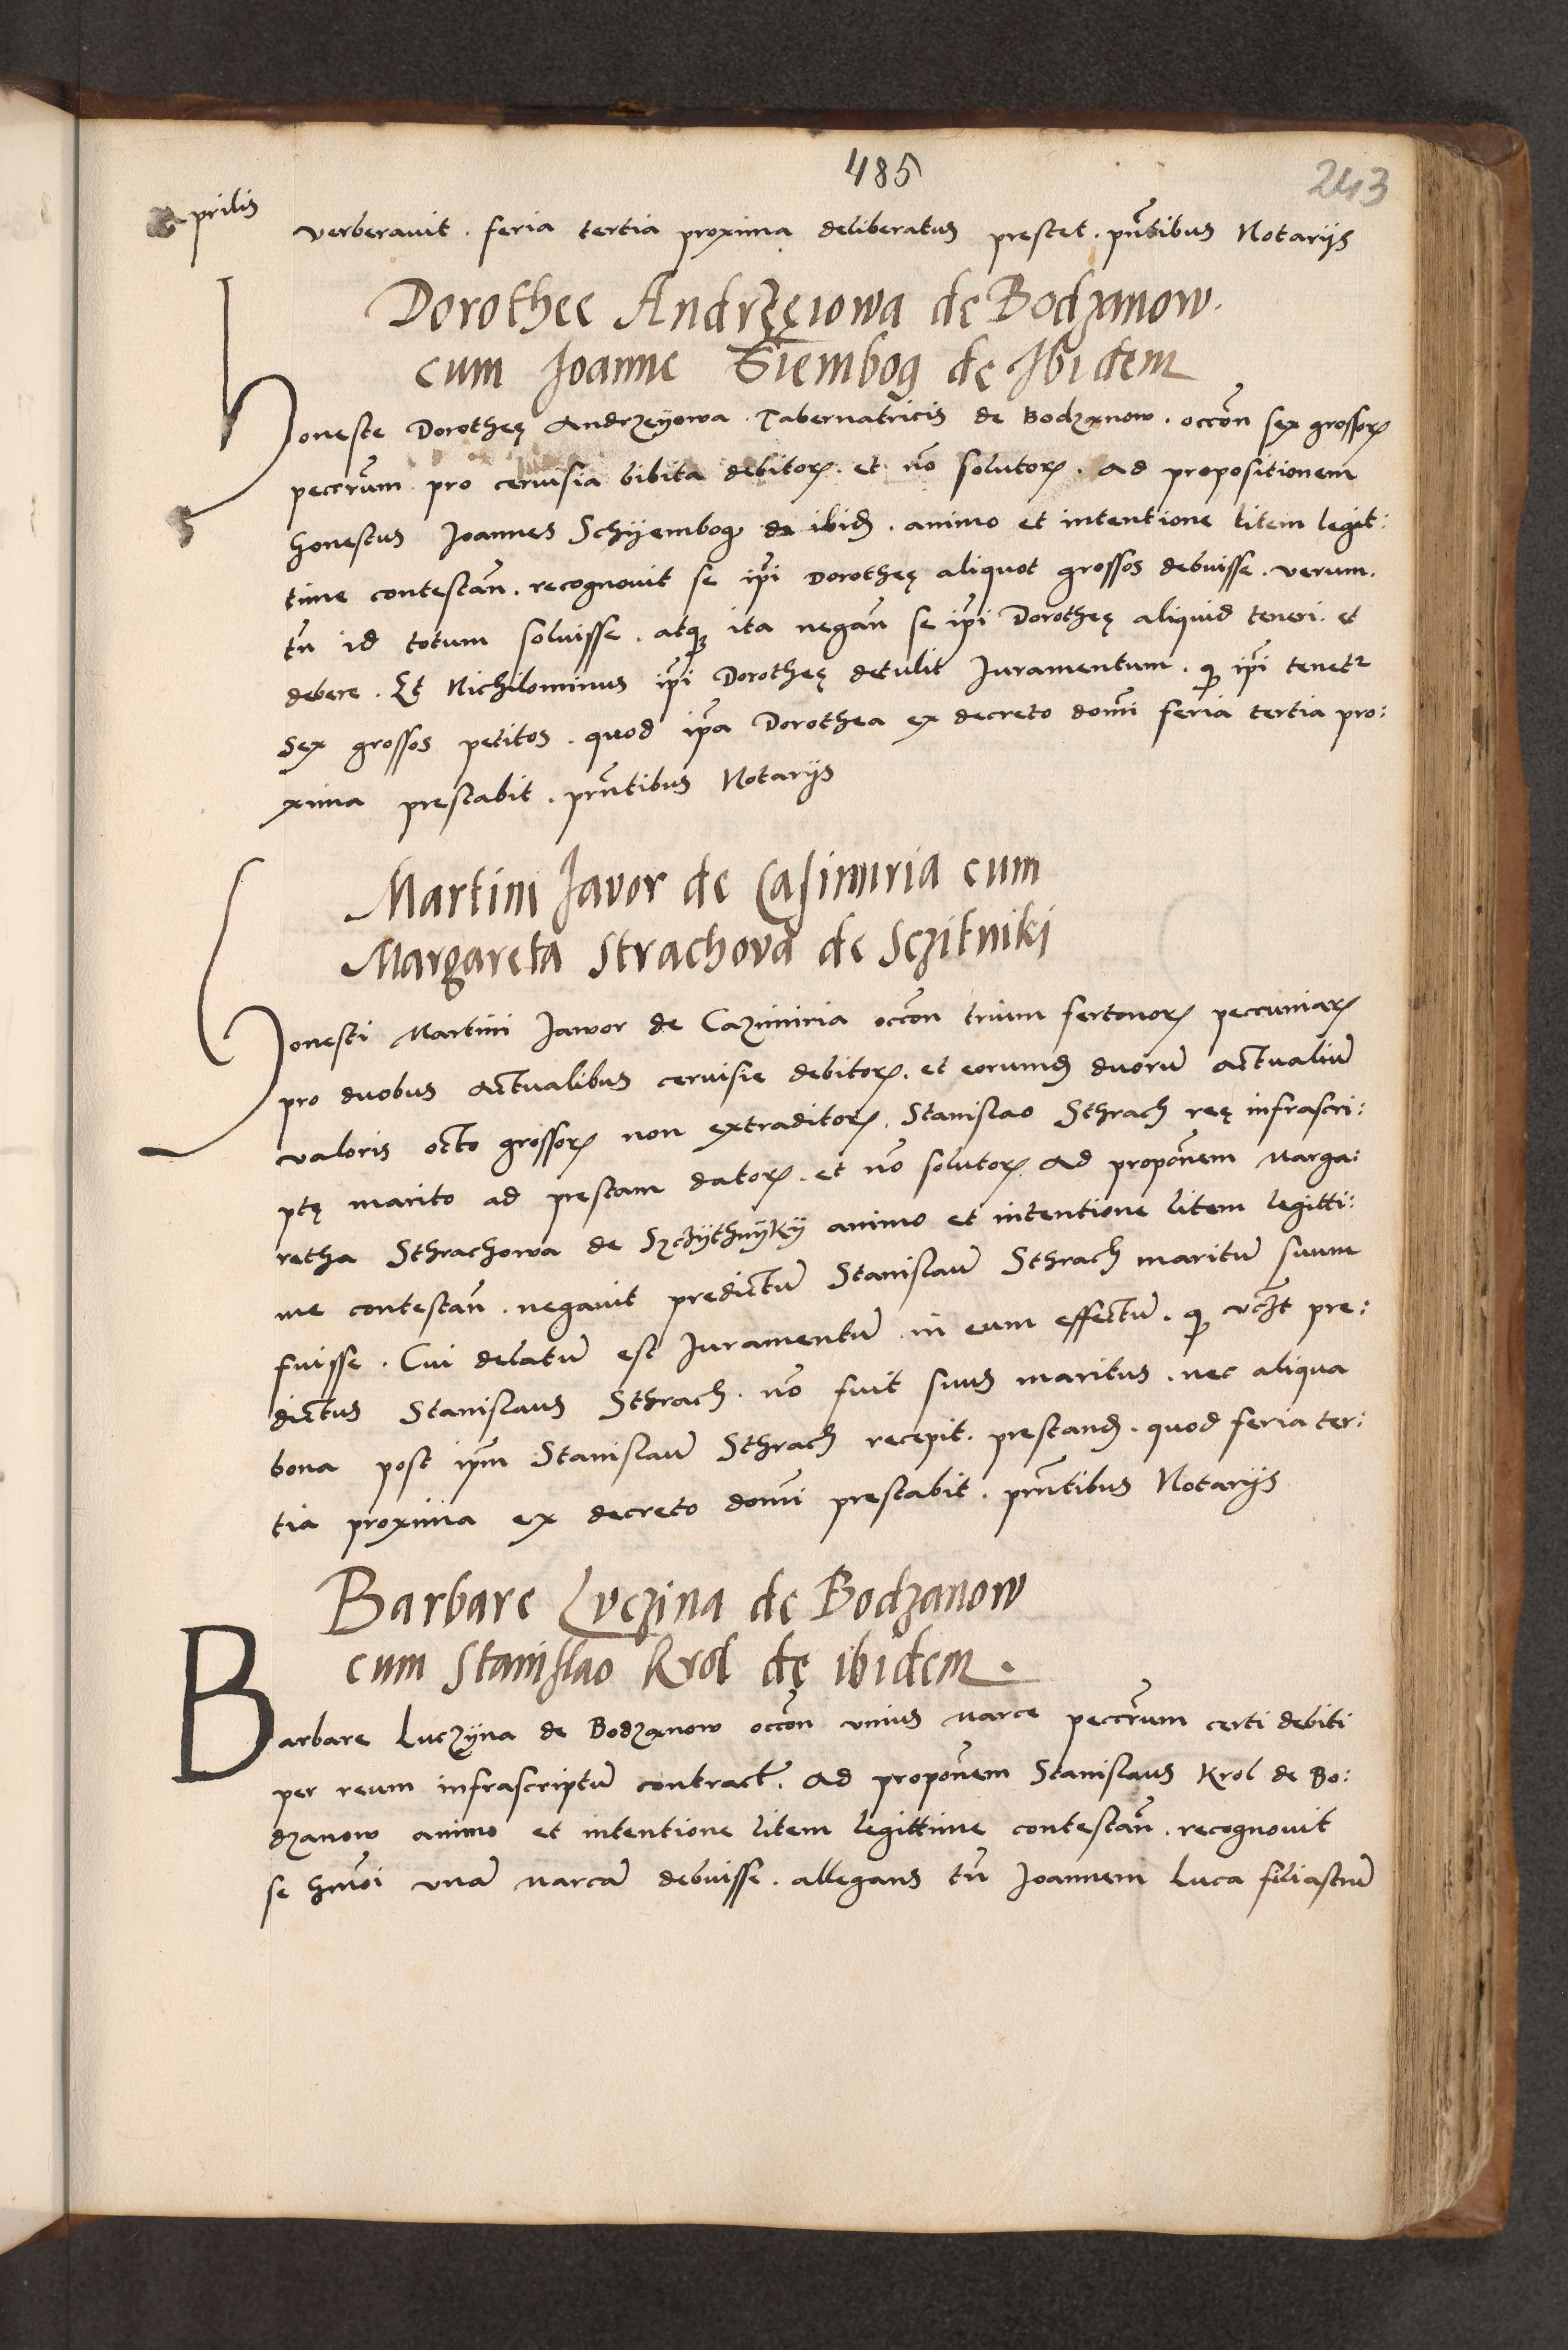 485
243
Aprilis
verberavit . feria tertia proxima deliberatus prestet . pñtibus Notarijs
Dorothee Andrzęiowa de Bodzanow .
cum Joanne Siembog de Ibidem
Honeste Dorotheę Andrzeyowa Tabernatricis de Bodzanow . occoñ sex grossorꝝ
peccrũm pro cervisia bibita debitorꝝ . et nõ solutorꝝ . Ad propositionem
honestus Joannes Schyembog de ibid . animo et intentione litem legit:
time contestañ . recognovit se ip̃i Dorotheę aliquot grossos debuisse . verum .
tñ id totum solvisse . atqꝫ ita negañ se ip̃i Dorotheę aliquid teneri . et
debere . Et Nichilominus ip̃i Dorotheę detulit Juramentum . qꝫ ip̃i tenetr
Sex grossos petitos . quod ip̃a Dorothea ex decreto domĩ feria tertia pro:
xima prestabit . prñtibus Notarijs
Martini Javor de Casimiria cum
Margareta Strachova de Sczitniki
Honesti Martini Jawor de Cazimiria occoñ trium fertonorꝝ peccuniarꝝ
pro duobus Actualibus cervisie debitorꝝ . et eorumd duorũ Actualiũ
valoris octo grossorꝝ non extraditorꝝ . Stanislao Sthrach reę infrascri:
ptę marito ad prestam datorꝝ . et nõ solutorꝝ Ad propoñem Marga:
retha Sthrachowa de Szczythnyky animo et intentione litem legitti:
me contestañ . negavit predictũ Stanislaũ Sthrach maritũ suum
fuisse . Cui delatũ est Juramentũ in eum effectũ . qꝫ vcꝫt pre:
dictus Stanislaus Sthrach . nõ fuit suus maritus . nec aliqua
bona post ip̃m Stanislaũ Sthrach recepit . prestand . quod feria ter:
tia proxima ex decreto domĩ prestabit . prñtibus Notarijs
Barbare Luczina de Bodzanow
cum Stanislao Krol de ibidem .
Barbare Luczyna de Bodzanow occoñ unius marce peccrũm certi debiti
per reum infrascriptũ contract . Ad propoñem Stanislaus Krol de Bo:
dzanow animo et intentione litem legittime contestañ . recognovit
se hmõi unã marcã debuisse . allegans tñ Joannem Luca filiastrũ